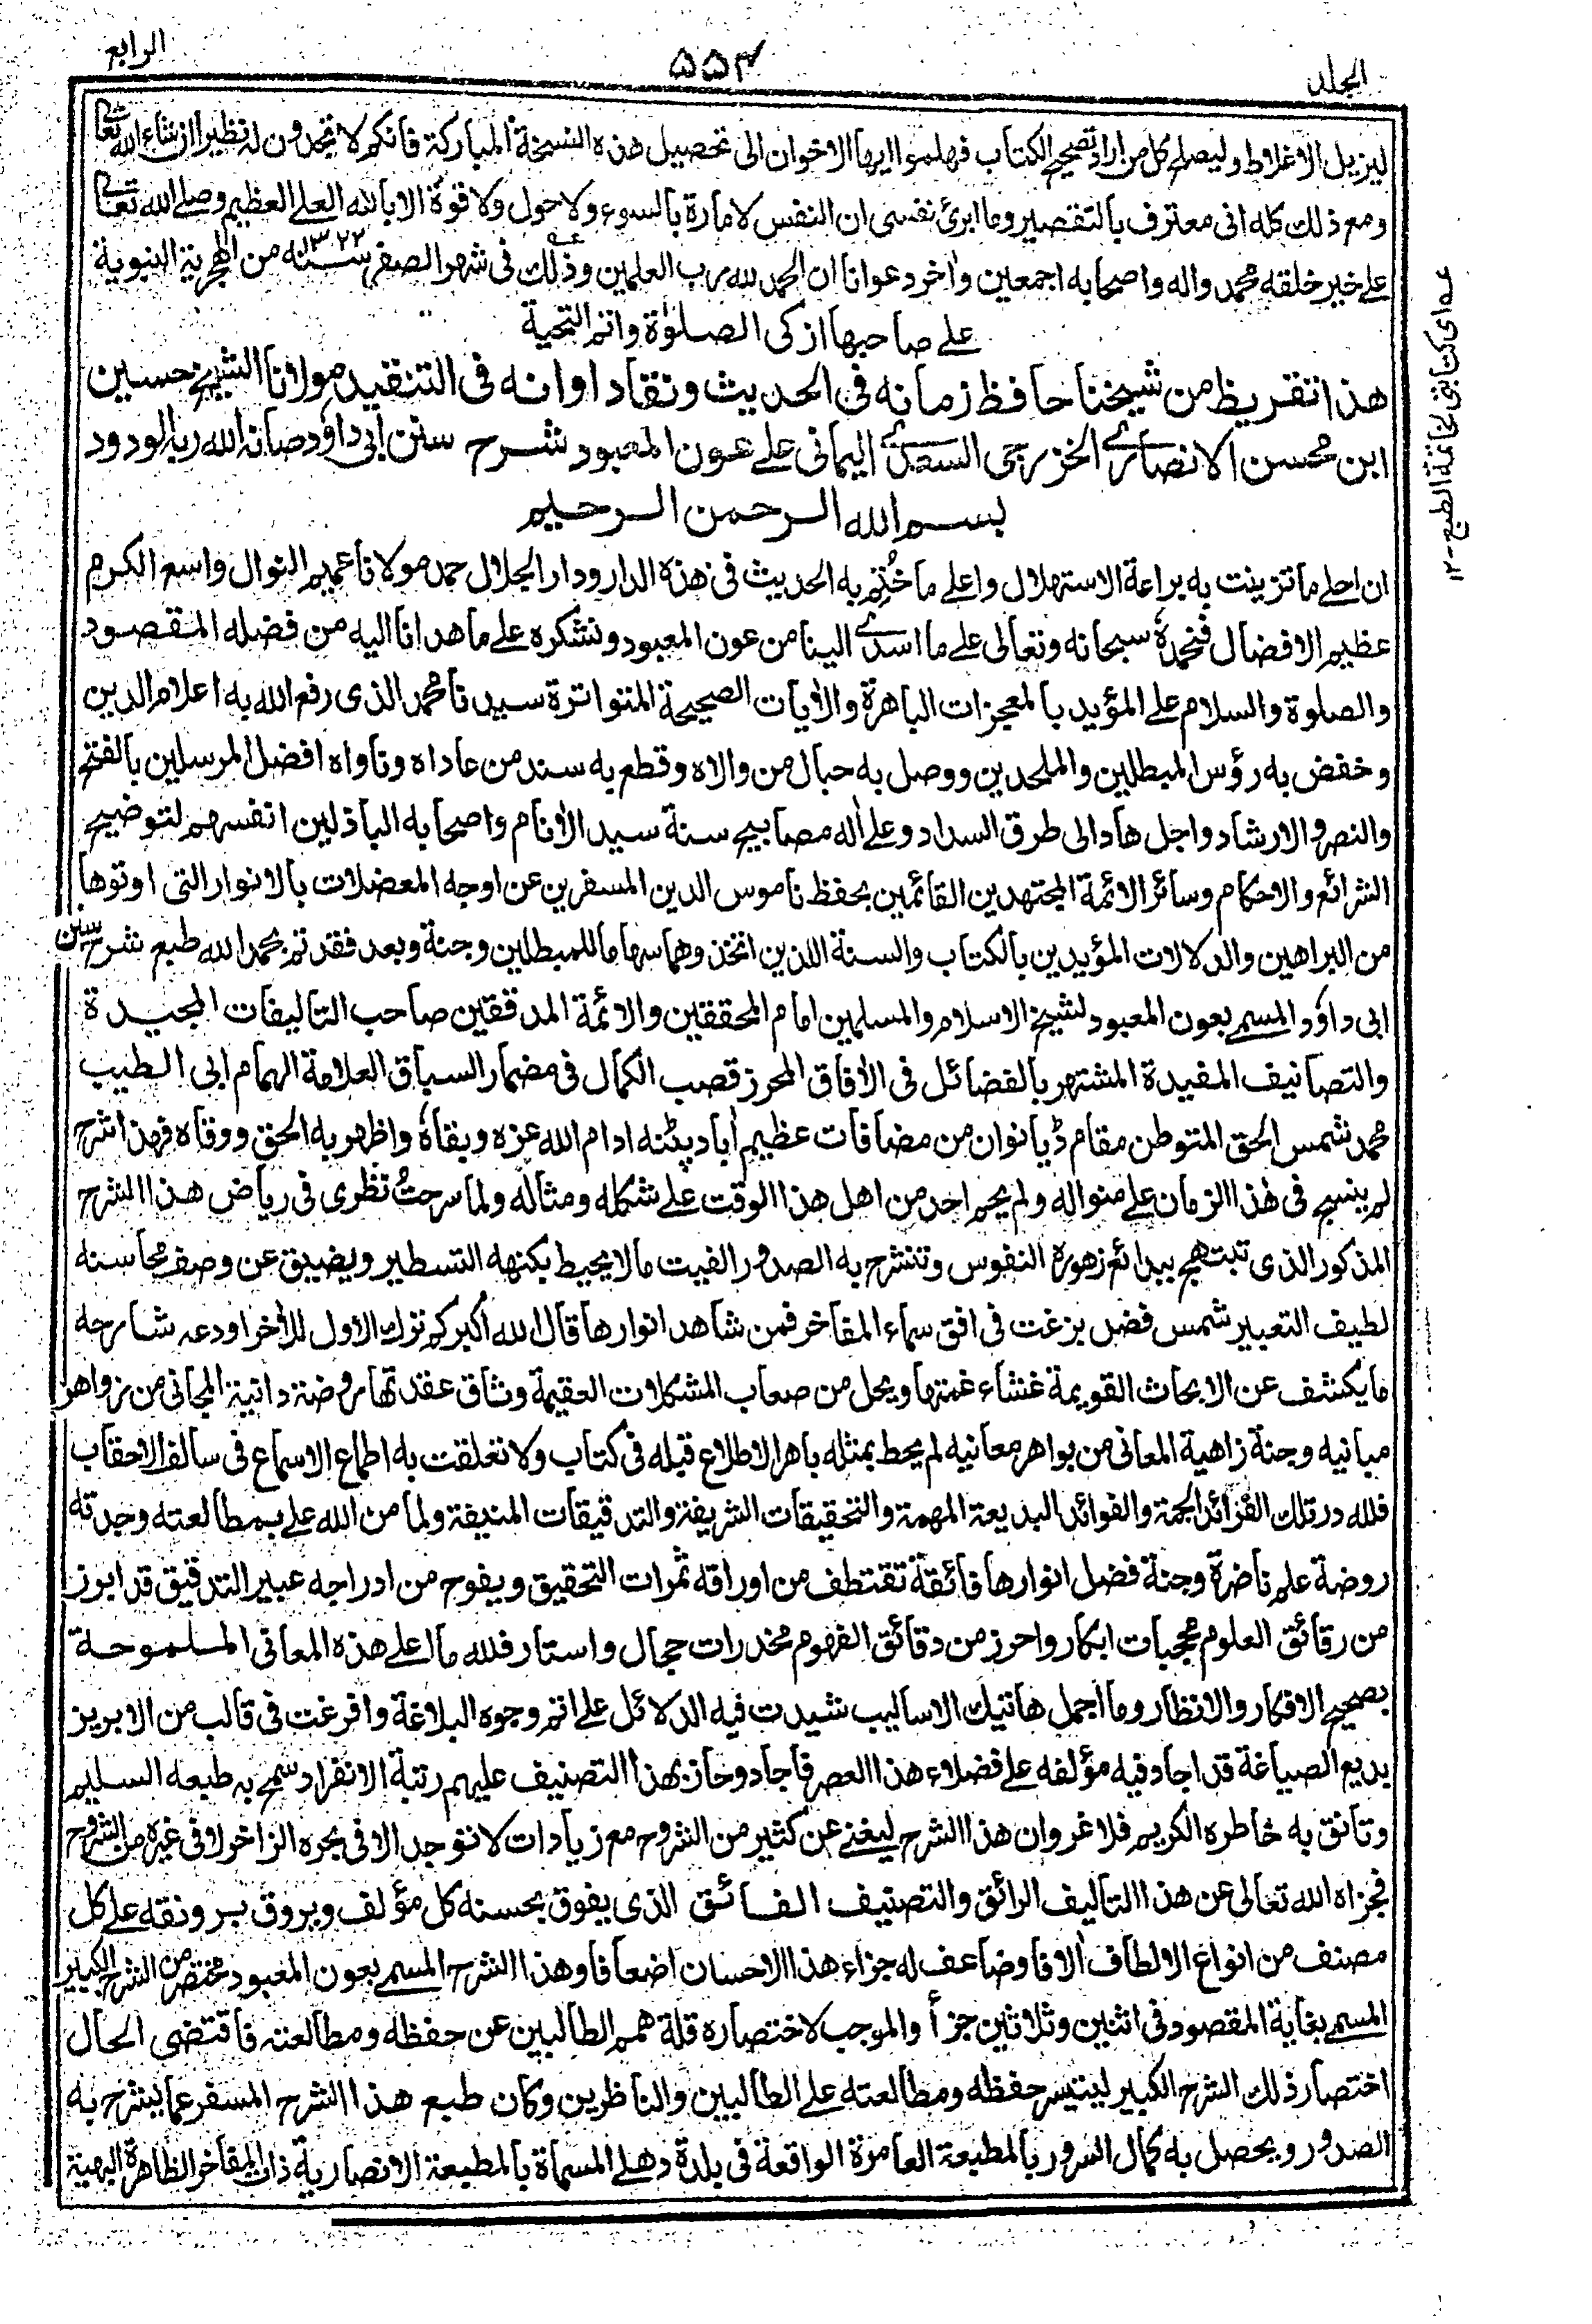 الجلد
٥٥٤
الرابع
ليزيل الاغلاط وليصلح كل من اراد تصحيح الكتاب فهلموا ايها الاخوان الى تحصيل هذه النسخة المباركة فانكم لا تجدون له نظيرا ان شاء الله تعالى
ومع ذلك كله انى معترف بالتقصير وما ابرئ نفسى ان النفس لامارة بالسوء ولا حول ولا قوة الا بالله العلے العظيم وصلے الله تعالى
علے خير خلقه محمد واله واصحابه اجمعين واخر دعوانا ان الحمد لله رب العلمين وذلك عـه فى شهر الصفر سنه ١٣٢٢ من الهجرية النبوية
علے صاحبها ازكى الصلوٰة واتم التحية
هذا تقريظ من شيخنا حافظ زمانه فى الحديث ونقاد اوانه فى التنقيد مولانا الشيخ حسين
ابن محسن الانصارے الخزرجى السعدى اليمانى علے عون المعبود شرح سنن ابى داؤد صانه الله ربه الودود
بسم الله الرحمن الرحيم
ان احلے ما تزينت به براعة الاستهلال واعلے ما خُتِم به الحديث فى هذه الدار ودار الجلال حمد مولانا عميم النوال واسع الكرم
عظيم الافضال فنحمده سبحانه وتعالى على ما اسدے الينا من عون المعبود ونشكره علے ما هدانا اليه من فضله المقصود
والصلوة والسلام علے المؤيد بالمعجزات الباهرة والاٰيات الصحيحة المتواترة سيدنا محمد الذى رفع الله به اعلام الدين
وخفض به رؤس المبطلين والملحدين ووصل به حبال من والاه وقطع به سند من عاداه وناواه افضل المرسلين بالفتح
والنصر والارشاد واجل هاد الى طرق السداد وعلے اٰله مصابيح سنة سيد الانام واصحابه الباذلين انفسهم لتوضيح
الشرائع والاحكام وسائر الائمة المجتهدين القائمين بحفظ ناموس الدين المسفرين عن اوجه المعضلات بالانوار التى اوتوها
من البراهين والدلالات المؤيدين بالكتاب والسنة اللذين اتخذوهما سهاما للمبطلين وجنة وبعد فقد تم بحمد الله طبع شرح سنن
ابى داؤد المسمے بعون المعبود لشيخ الاسلام والمسلمين امام المحققين والائمة المدققين صاحب التاليفات المجيدة
والتصانيف المفيدة المشتهر بالفضائل فى الاٰفاق المحرز قصب الكمال فى مضمار السباق العلامة الهمام ابى الطيب
محمد شمس الحق المتوطن مقام ڈيانوان من مضافات عظيم اٰباد پٹنه ادام الله عزه وبقاهٗ واظهر به الحق ووقاه فهذا شرح
لم ينسج فى هذا الزمان علے منواله ولم يحم احد من اهل هذا الوقت علے شكله ومثاله ولما سرحتُ نظرى فى رياض هذا الشرح
المذكور الذى تبتهج ببدائع زهوره النفوس وتنشرح به الصدور الفيت ما لا يحيط بكنهه التسطير ويضيق عن وصف محاسنه
لطيف التعبير شمس فضل بزغت فى افق سماء المفاخر فمن شاهد انوارها قال الله اكبر كم ترك الاول للاٰخر اودعه شارحه
ما يكشف عن الابحاث القويمة غشاء غمتها ويحل من صعاب المشكلات العقيمة وثاق عقدتها روضة دانية المجانى من زواهر
مبانيه وجنة زاهية المعانى من بواهر معانيه لم يحط بمثله باهر الاطلاع قبله فى كتاب ولا تعلقت به اطماع الاسماع فى سالف الاحقاب
فلله در تلك الفرائد الجمة والفوائد البديعة المهمة والتحقيقات الشريفة والتدقيقات المنيفة ولما من الله علے بمطالعته وجدته
روضة علم ناضرة وجنة فضل انوارها فائقة تقتطف من اوراقه ثمرات التحقيق ويفوح من ادراجه عبير التدقيق قد ابرز
من رقائق العلوم محجبات ابكار واحرز من دقائق الفهوم مخدرات حجال واستار فلله ما اعلے هذه المعانى الملموحة
بصحيح الافكار والانظار وما اجمل هاتيك الاساليب شيدت فيه الدلائل علے اتم وجوه البلاغة وافرغت فى قالب من الابريز
بديع الصياغة قد اجاد فيه مؤلفه علے فضلاء هذا العصر فاجاد وحاز بهذا التصنيف عليهم رتبة الانفراد سمح به طبعه السليم
وتانق به خاطره الكريم فلا غرو ان هذا الشرح ليغنے عن كثير من الشروح مع زيادات لا توجد الا فى بحره الزاخر لا فى غيره من الشروح
فجزاه الله تعالى عن هذا التاليف الرائق والتصنيف الفائق الذى يفوق بحسنه كل مؤلف ويروق برونقه علے كل
مصنف من انواع الالطاف اٰلافا وضاعف له جزاء هذا الاحسان اضعافا وهذا الشرح المسمے بعون المعبود مختصر من الشرح الكبير
المسمے بغاية المقصود فى اثنين وثلاثين جزأ والموجب لاختصاره قلة همم الطالبين عن حفظه ومطالعته فاقتضى الحال
اختصار ذلك الشرح الكبير ليتيسر حفظه ومطالعته علے الطالبين والناظرين وكان طبع هذا الشرح المسفر عما ينشرح به
الصدور ويحصل به كمال السرور بالمطبعة العامرة الواقعة فى بلدة دهلے المسماة بالمطبعة الانصارية ذات المفاخر الظاهرة البهية
عـه اى كتابتى لخاتمة الطبع - ١٢